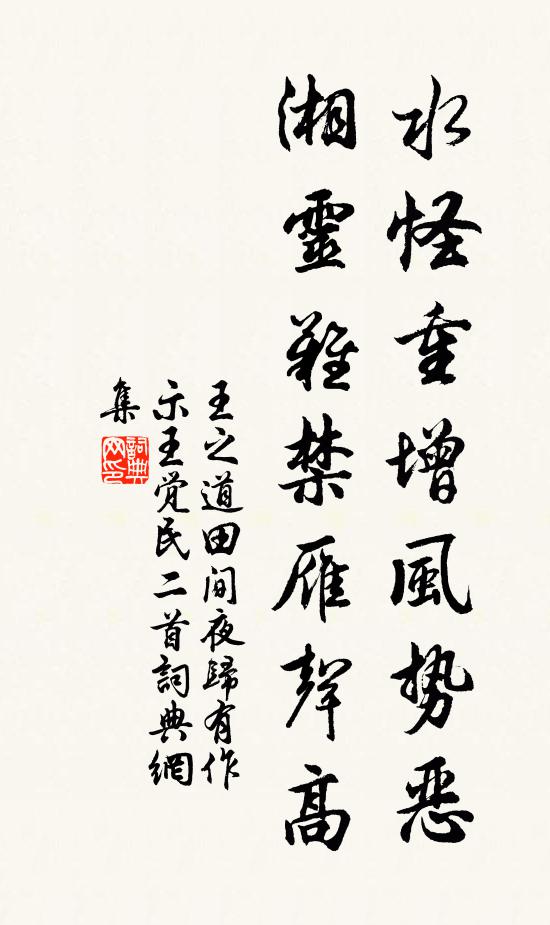 水怪重增風勢惡
湘靈難禁雁聲高
王之道田間夜歸有作
示王覚民二首詞典網
集
詞典
网印